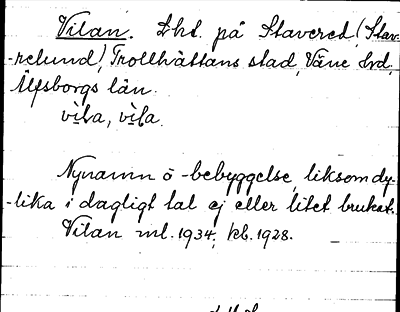 Vilan. Lht. på Stavered (Stav-
-relund), Trollhättans stad, Väne hd,
Älfsborgs län.
vìla, vìla.
Nynamn å -bebyggelse, liksom dy-
-lika i dagligt tal ej eller litet brukat.
Vilan ml. 1934; kb. 1928.